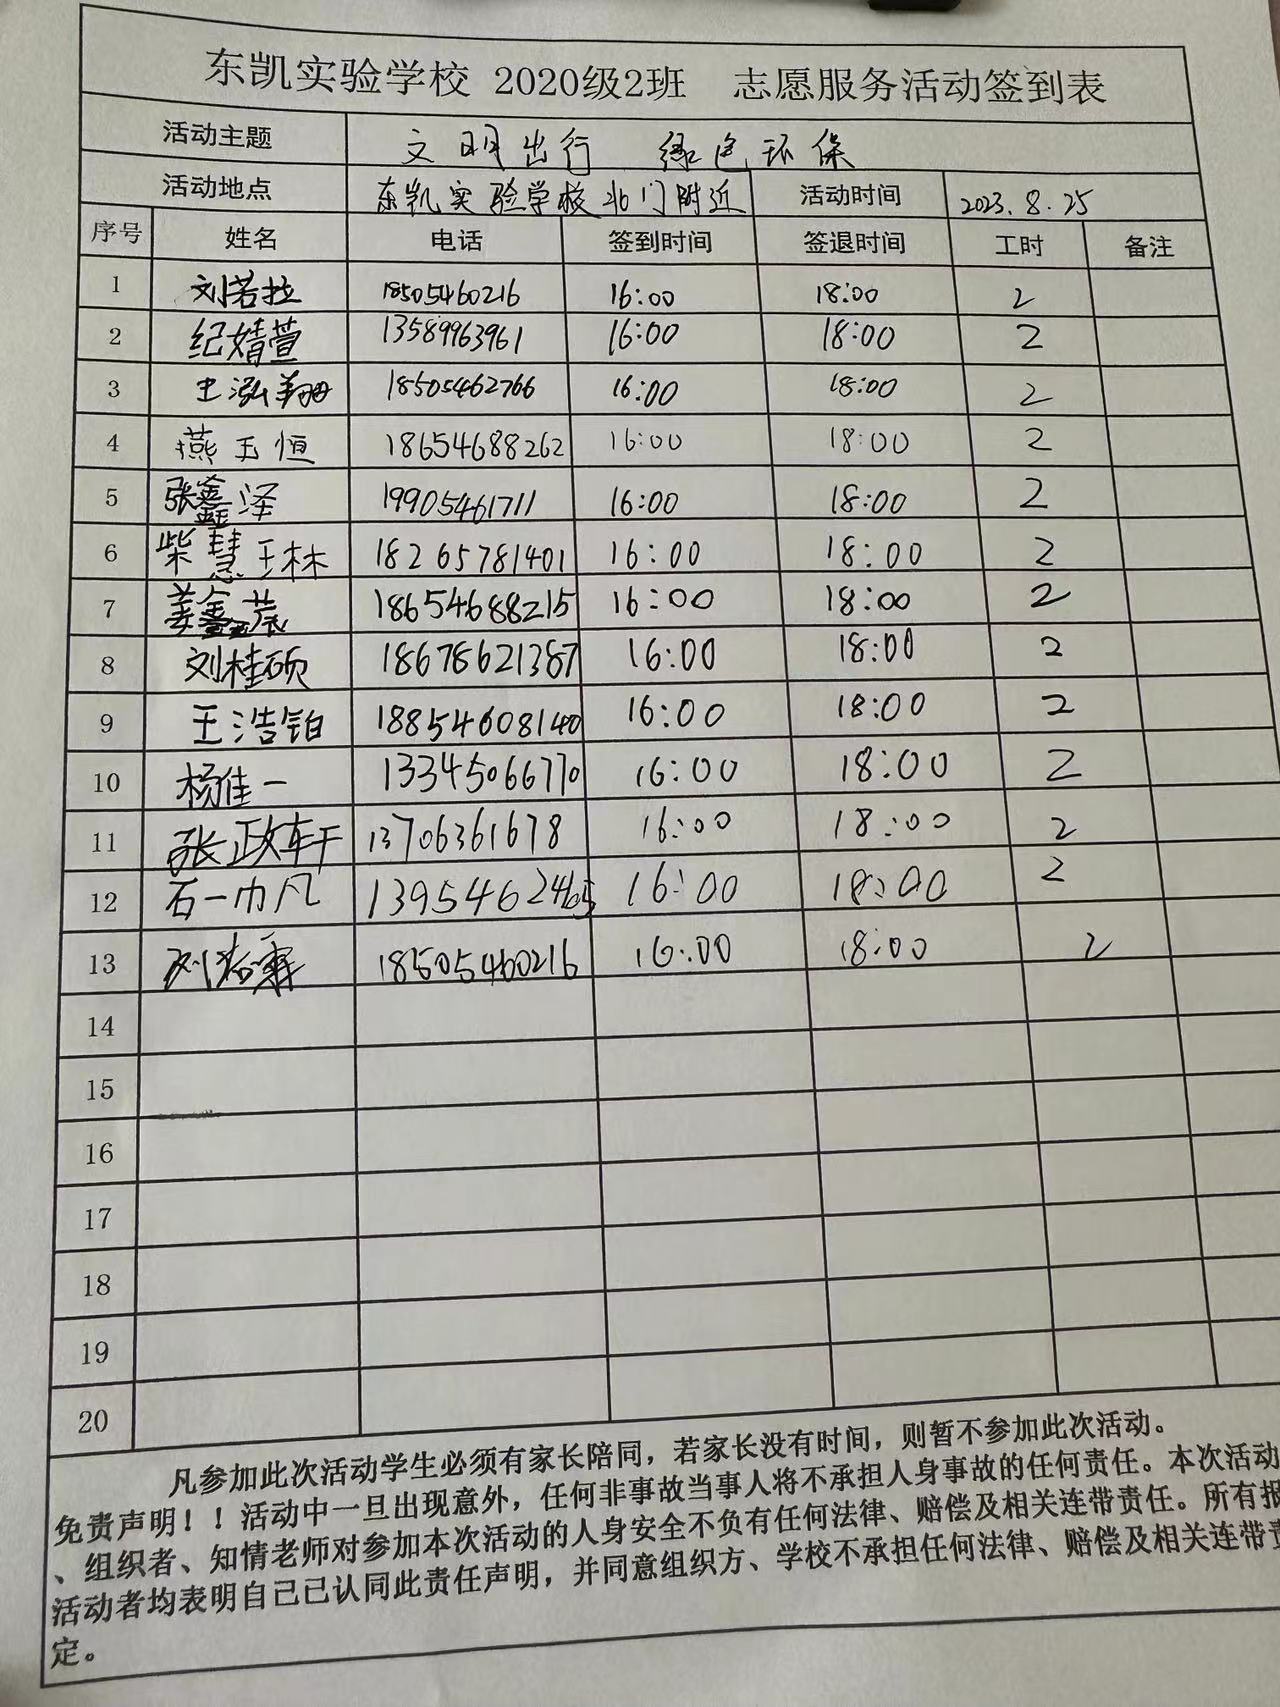 东凯实验学校 2020级2班 志愿服务活动签到表
活动主题 文明出行 绿色环保
活动地点 东凯实验学校北门附近 活动时间 2023.8.25
序号 姓名 电话 签到时间 签退时间 工时 备注
1 刘若拉 18505460216 16:00 18:00 2
2 纪婧萱 13589963961 16:00 18:00 2
3 王泓翔 18505462766 16:00 18:00 2
4 燕玉恒 18654688262 16:00 18:00 2
5 张鑫泽 19905461711 16:00 18:00 2
6 柴慧琳 18265781401 16:00 18:00 2
7 姜鑫宸 18654688215 16:00 18:00 2
8 刘桂硕 18678621387 16:00 18:00 2
9 王浩铂 18854608140 16:00 18:00 2
10 杨佳一 13345066770 16:00 18:00 2
11 张政轩 13706361678 16:00 18:00 2
12 石一帆 1395462465 16:00 18:00 2
13 刘若霖 18505460216 16:00 18:00 2
14
15
16
17
18
19
20
凡参加此次活动学生必须有家长陪同，若家长没有时间，则暂不参加此次活动。
免责声明！！活动中一旦出现意外，任何非事故当事人将不承担人身事故的任何责任。本次活动
、组织者、知情老师对参加本次活动的人身安全不负有任何法律、赔偿及相关连带责任。所有报
活动者均表明自己已认同此责任声明，并同意组织方、学校不承担任何法律、赔偿及相关连带责
定。